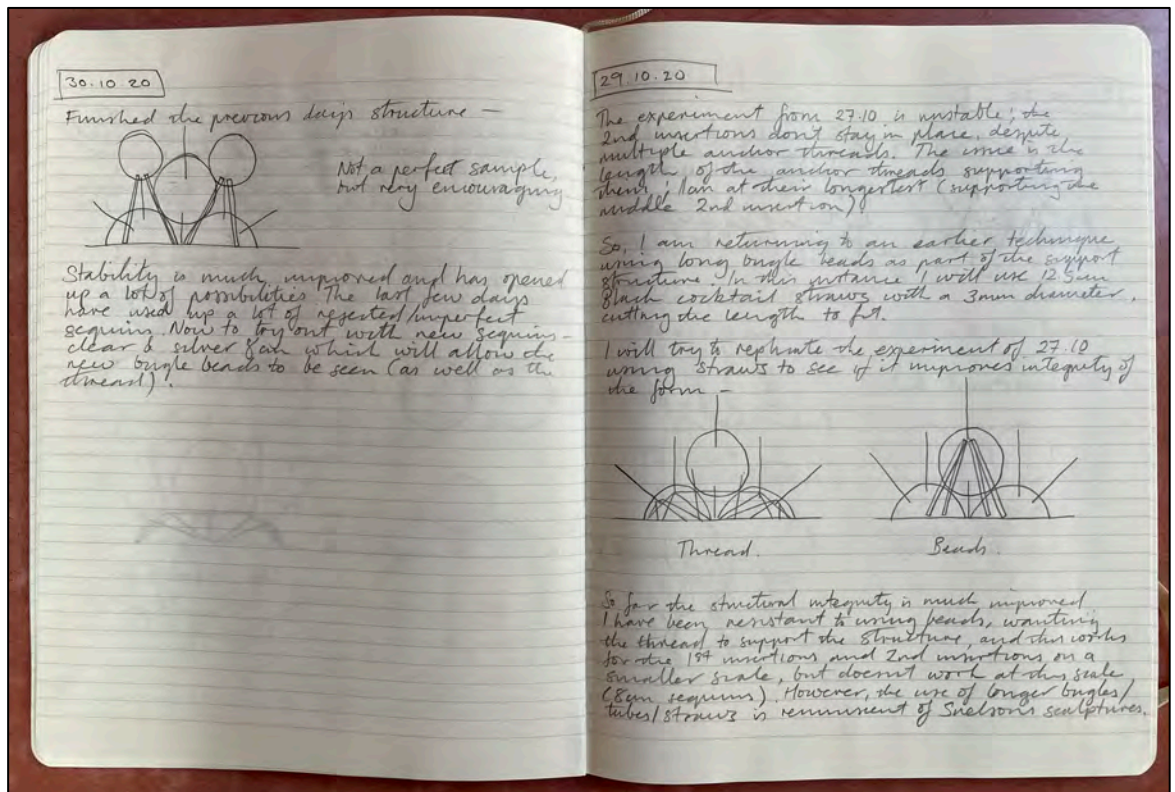 30.10.20
Finished the previous day's structure –
Not a perfect sample,
but very encouraging
Stability is much improved and has opened
up a lot of possibilities. The last few days
have used up a lot of rejected/imperfect
sequins. Now to try out with new sequins –
clear & silver 8cm which will allow the
new bugle beads to be seen (as well as the
thread).
29.10.20
The experiment from 27.10 is unstable; the
2nd insertions don't stay in place, despite
multiple anchor threads. The issue is the
length of the anchor threads supporting
them; at their longest (supporting the
middle 2nd insertion)
So, I am returning to an earlier technique
using long bugle beads as part of the support
structure. In this instance I will use 12.5cm
black cocktail straws with a 3mm diameter,
cutting the length to fit.
I will try to replicate the experiment of 27.10
using straws to see if it improves integrity of
the form –
Thread.
Beads.
So far the structural integrity is much improved
I have been resistant to using beads, wanting
the thread to support the structure, and this works
for the 1st insertions and 2nd insertions on a
smaller scale, but doesn't work at this scale
(8cm sequins). However, the use of longer bugles/
tubes/straws is reminiscent of Snelson's sculptures.